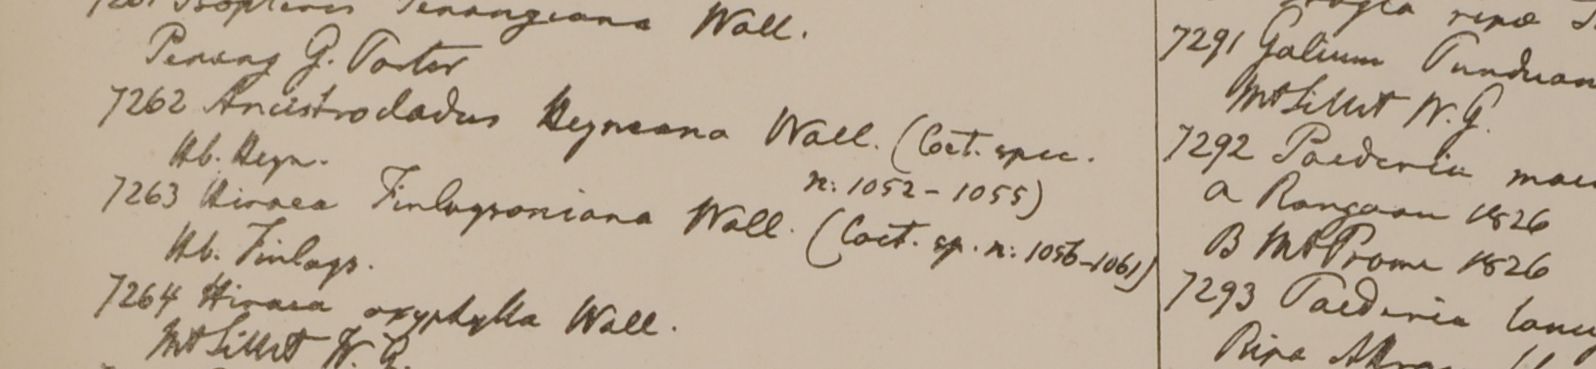 7261 Isopteris Penangiana Wall.
Penang G. Porter
7262 Ancistrocladus Heyneana Wall. (Coct. spec.
n: 1052 - 1055)
Hb. Heyn.
7263 Hiraea Finlaysoniana Wall. (Coct. sp. n: 1056-1061)
Hb. Finlays.
7264 Hiraea oxyphylla Wall.
Mt Sillet W. G.
ripæ
7291 Galium Tunduan
Mt Sillet W. G.
7292 Paederia
a Rangoon 1826
B Mt Prome 1826
7293 Paederia lanu
Ripa